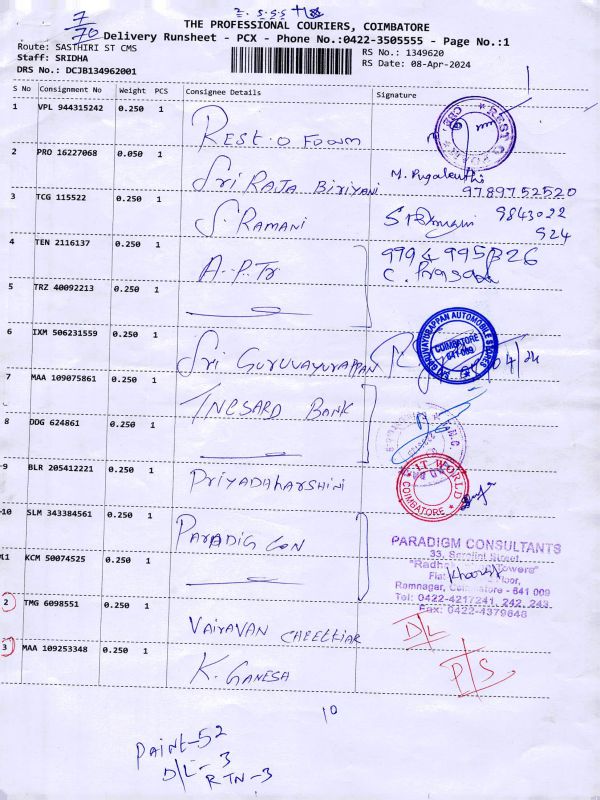 7
70
THE PROFESSIONAL COURIERS, COIMBATORE
Delivery Runsheet - PCX - Phone No.:0422-3505555 - Page No.:1
Route: SASTHIRI ST CMS
RS No.: 1349620
Staff: SRIDHA
RS Date: 08-Apr-2024
DRS No.: DCJB134962001
S No Consignment No Weight PCS Consignee Details Signature
1 VPL 944315242 0.250 1 REST.O FOAM
2 PRO 16227068 0.050 1 SRI RAJA BIRIYANI M. Pugalenthi 9789752520
3 TCG 115522 0.250 1 S. RAMANI 9843022
924
4 TEN 2116137 0.250 1 A.P.Tr
C. Prasad
5 TRZ 40092213 0.250 1
6 IXM 506231559 0.250 1 SRI GURUVAYURAPPAN
SRI GURUVAYURAPPAN AUTOMOBILE STORES
COIMBATORE
641-009
04/24
7 MAA 109075861 0.250 1 BANK
8 DDG 624861 0.250 1
9 BLR 205412221 0.250 1 PRIYADHARSHINI
I.T WORLD
COIMBATORE
10 SLM 343384561 0.250 1 PARADIG CON
PARADIGM CONSULTANTS
33, Sarojini Street,
"Radha Towers"
11 KCM 50074525 0.250 1
Ramnagar, Coimbatore - 641 009
Tel: 0422-4217241, 242, 243
Fax: 0422-4379648
2 TMG 6098551 0.250 1 VAIRAVAN CHEELKIAR D/L
3 MAA 109253348 0.250 1 K. GANESA P/S
10
PAINT-52
D/L-3
RTN-3